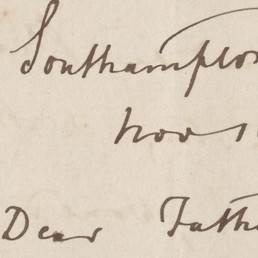 Southampton
Nov
Dear Fath